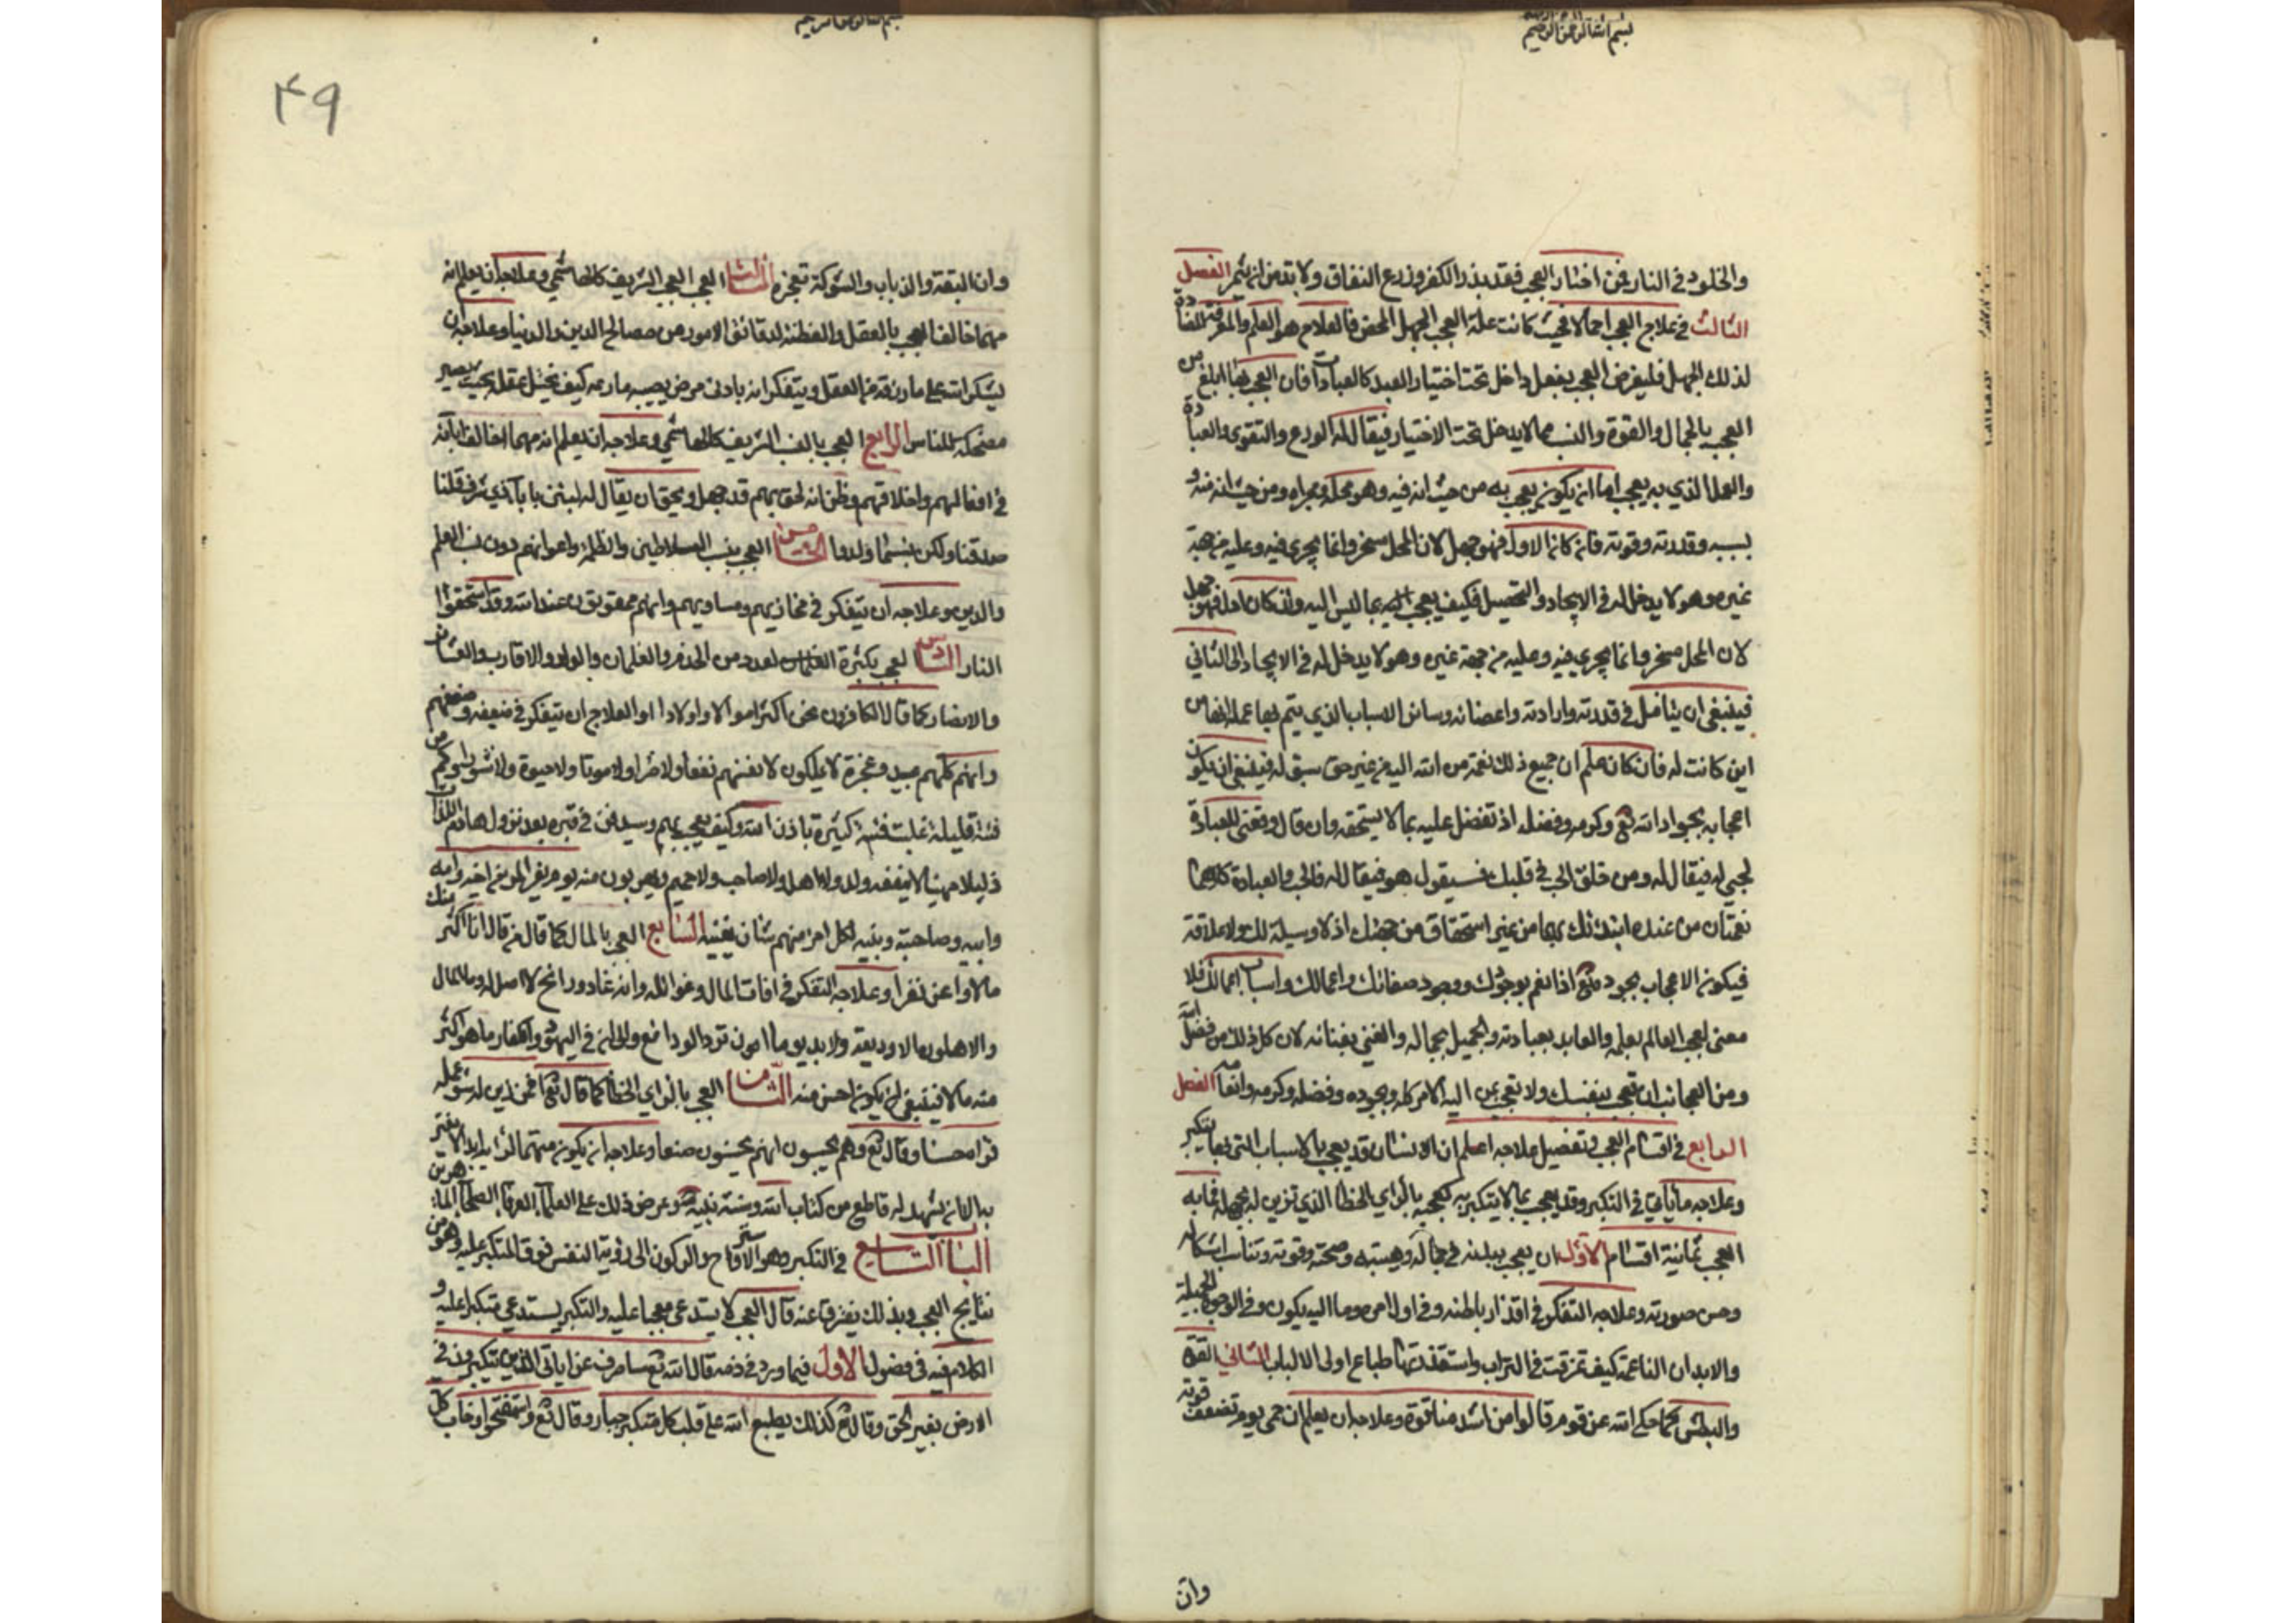 بسم الله الرحمن الرحيم
والخلود في النار فمن اختار العجب فقد بذر الكفر وزرع النفاق ولا بد من ان يثمر الفصل
الثالث في علاج العجب اجمالا فحيث كانت علة العجب الجهل المحض فالعلاج هو العلم والمعرفة المضادة
لذلك الجهل فليفرض العجب بفعل داخل تحت اختيار العبد كالعبادات فان العجب بهذا ابلغ من
العجب بالجمال والقوة والنسب مما لا يدخل تحت الاختيار فيقال له الورع والتقوى والعبادة
والعمل الذي به يعجب اما ان يكون يعجب به من حيث انه فيه وهو محله ومجراه ومن حيث انه منه و
بسببه وقدرته وقوته فان كان الاول فهو جهل لان المحل مسخر وانما يجري فيه وعليه من جهة
غيره وهو لا يدخل له في الايجاد والتحصيل فكيف يعجب بما ليس اليه وان كان فهو جهل
لان المحل مسخر وانما يجري فيه وعليه من جهة غيره وهو لا يدخل له في الايجاد الثاني
فينبغي ان يتامل في قدرته وارادته واعضائه وسائر الاسباب الذي يتم بها عمله انها من
اين كانت له فان كان علم ان جميع ذلك نعمة من الله اليه من غير حق سبق له فينبغي ان يكون
اعجابه بجود الله تع وكرمه وفضله اذ تفضل عليه بما لا يستحقه وان قال وفقني للعبادة
لحبي له فيقال له ومن خلق الحب في قلبك فسيقول هو فيقال له فالحب والعبادة كلاهما
نعمتان من عنده ابتدئك بهما من غير استحقاق من جهتك اذ لا وسيلة لك ولا علاقة
فيكون الاعجاب بجوده تع اذ انعم بوجودك ووجود صفاتك واعمالك واسباب اعمالك فلا
معنى لعجب العالم بعلمه والعابد بعبادته والجميل بجماله والغني بغنائه لان كل ذلك من فضل الله
ومن العجائب ان تعجب بنفسك ولا تعجب بمن اليه الامر كله وبجوده وفضله وكرمه الفصل
الرابع في اقسام العجب وتفصيل علاجه اعلم ان الانسان قد يعجب بالاسباب التي بها يتكبر
وعلاجه ما ياتي في التكبر وقد يعجب بما لا يتكبر به كعجبه بالراي الخطا الذي تزين له بجهله فما به
العجب ثمانية اقسام الاول ان يعجب ببدنه في جماله وهيئته وصحته وقوته وتناسب اشكاله
وحسن صورته وعلاجه التفكر في اقذار باطنه وفي اول امره وما اليه يكون وفي الوجوه الجميلة
والابدان الناعمة كيف تمزقت في التراب واستقذرتها طباع اولى الالباب الثاني القوة
والبطش كما حكى الله عن قوم قالوا من اشد منا قوة وعلاجه ان يعلم ان حمى يوم تضعف قوته
وان
بسم الله الرحمن الرحيم
۴۹
وان البقة والذباب والشوكة تعجزه الثالث العجب وعلاجه ان يعلم انه
مهما خالف العجب بالعقل والفطنة لدقائق الامور من مصالح الدين والدنيا وعلاجه ان
يشكر الله على ما رزقه من العقل ويتفكر انه بادنى مرض يصيب دماغه كيف يختل عقله بحيث يصير
مضحكة للناس الرابع العجب بالنسب الشريف كالهاشمي وعلاجه ان يعلم انه مهما خالف ابائه
في افعالهم واخلاقهم وظن انه لحق بهم فقد جهل ويحق ان يقال له لئن فخرت بآباء ذوي شرف قلنا
صدقنا ولكن بئسما ولدوا الخامس العجب بنسب السلاطين والظلمة واعوانهم دون نسب العلم
والدين وعلاجه ان يتفكر في مخازيهم ومساويهم وانهم ممقوتون عند الله وقد استحقوا
النار السادس العجب بكثرة العدد من الخدم والغلمان والولد والاقارب والعشائر
والانصار كما قال الكافرون نحن اكثر اموالا واولادا والعلاج ان يتفكر في ضعفه وضعفهم
وانهم كلهم عبيد وعجزة لا يملكون لانفسهم نفعا ولا ضرا ولا موتا ولا حيوة ولا نشورا وكم من
فئة قليلة غلبت فئة كثيرة باذن الله وكيف يعجب بهم وسيدفن في قبره بعد نزول هادم اللذات
ذليلا مهينا لا ينفعه ولد ولا اهل ولا صاحب ولا حميم ويهربون منه يوم يفر المرء من اخيه وامه
وابيه وصاحبته وبنيه لكل امرئ منهم شان يغنيه السابع العجب بالمال كما قال من قال انا اكثر منك
مالا واعز نفرا وعلاجه التفكر في افات المال وغوائله وانه غاد ورائح لا اصل له وما المال
والاهلون الا وديعة ولا بد يوما ان ترد الودائع والى ان في اليهود والكفار ما هو اكثر
منه مالا فينبغي ان يكون احسن منه الثامن العجب بالراي الخطا كما قال تع افمن زين له سوء عمله
فراه حسنا وقال تع وهم يحسبون انهم يحسنون صنعا وعلاجه ان يكون متهما لرايه ابدا لا يغتر
به الا ان يشهد له قاطع من كتاب الله وسنة نبيه وعرض ذلك على العلماء العرفاء الصلحاء الماهرين
الباب التاسع في التكبر وهو والركون الى رؤية النفس فوق المتكبر عليه وهو من
نتايج العجب وبذلك يفترق عنه قال العجب لا يستدعي معجبا عليه والتكبر يستدعي متكبرا عليه و
الكلام فيه في فصول الاول فيما ورد في ذمه قال الله تع ساصرف عن اياتي الذين يتكبرون في
الارض بغير الحق وقال تع كذلك يطبع الله على قلب كل متكبر جبار وقال تع واستفتحوا وخاب كل